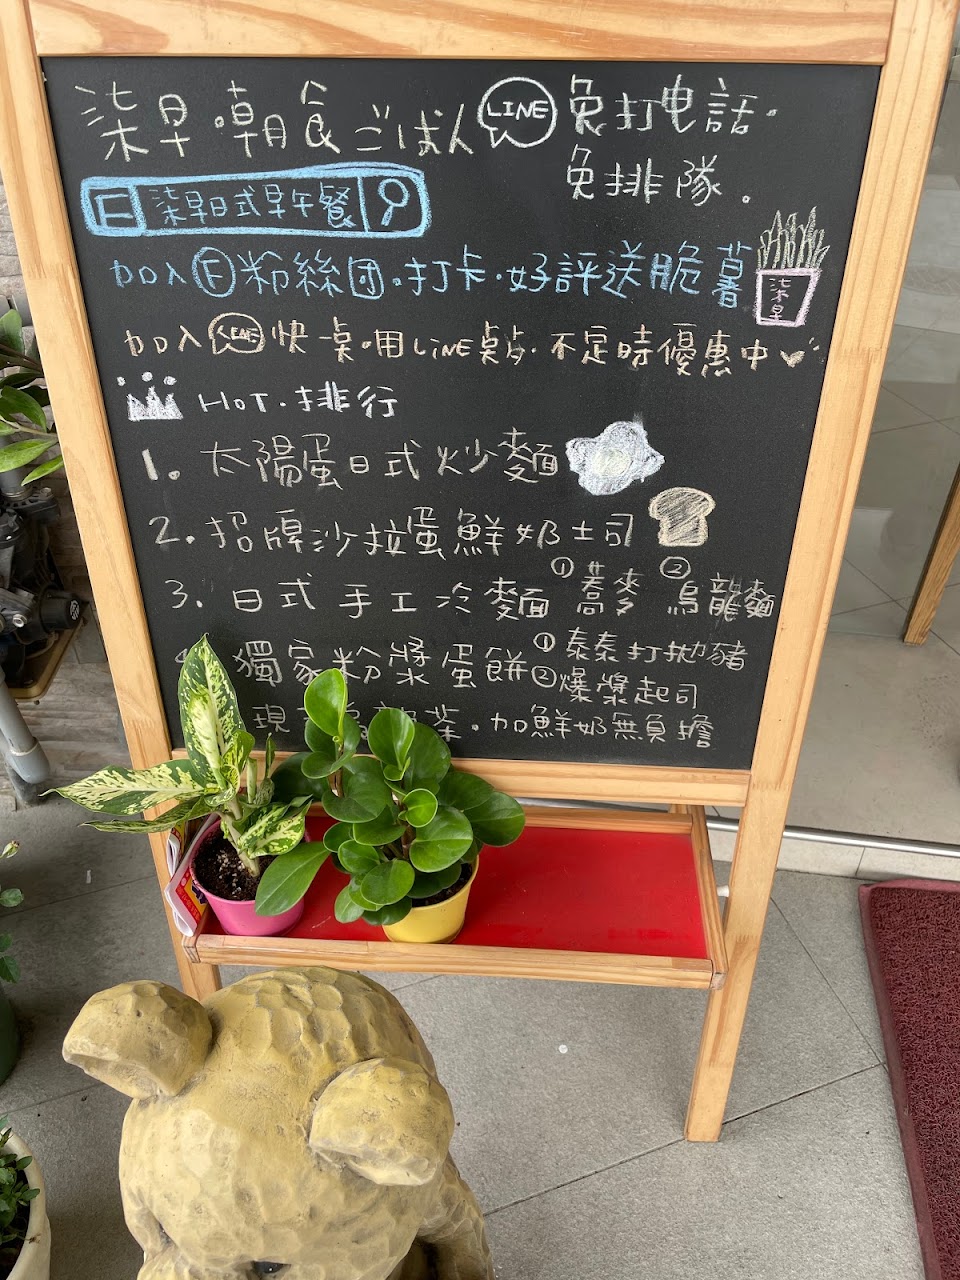 柒早・朝食ごはん LINE 免打电話.
免排隊.
F 柒早日式早午餐
加入 F 粉絲团.打卡.好評送脆薯
柒早
加入 LINE 快桌.用LINE桌步.不定時優惠中
HOT.排行
1. 太陽蛋日式炒麵
2. 招牌沙拉蛋鮮奶土司
3. 日式手工冷麵 ①蕎麥 ②烏龍麵
獨家粉漿蛋餅 ①泰泰打拋豬
②爆漿起司
現 茶.加鮮奶無負擔